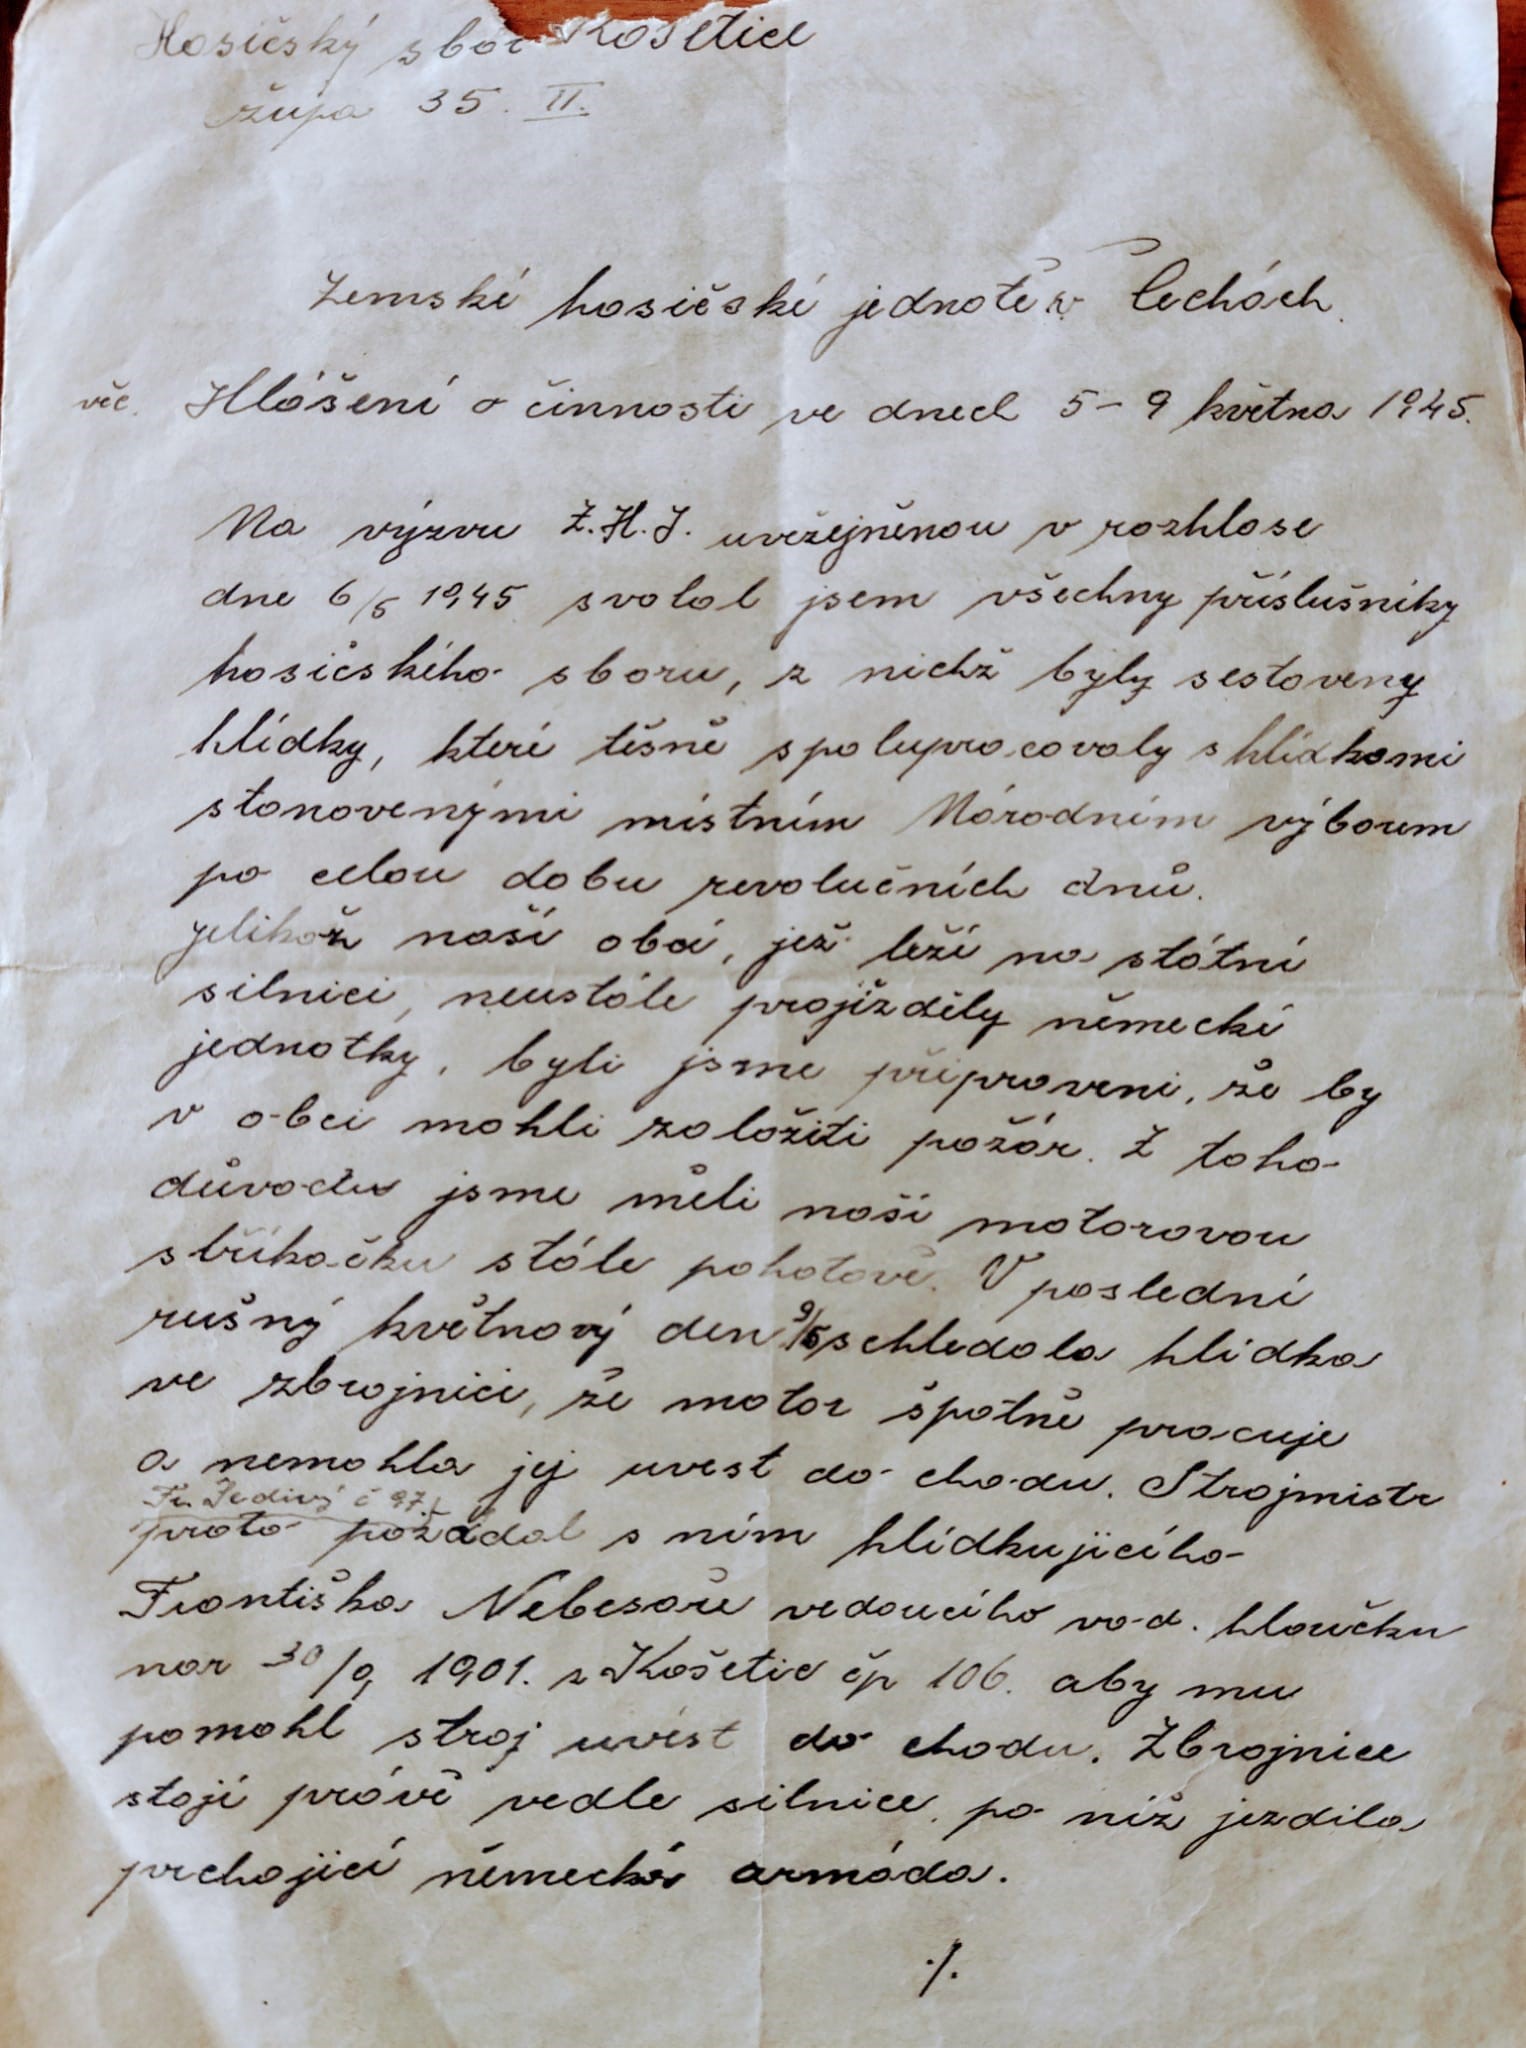 Hasičský sbor Košetice
župa 35. II.
Zemské hasičské jednotě v Čechách.
věc. Hlášení o činnosti ve dnech 5 – 9 května 1945.
Na výzvu Z.H.J. uveřejněnou v rozhlase
dne 6/5 1945 svolal jsem všechny příslušníky
hasičského sboru, z nichž byly sestaveny
hlídky, které těsně spolupracovaly s hlídkami
stanovenými místním Národním výborem
po celou dobu revolučních dnů.
Jelikož naší obcí, jež leží na státní
silnici, neustále projížděly německé
jednotky, byli jsme připraveni, že by
v obci mohli založiti požár. Z toho
důvodu jsme měli naši motorovou
stříkačku stále pohotově. V poslední
rušný květnový den 9/5 schledala hlídka
ve zbrojnici, že motor špatně pracuje
a nemohla jej uvest do chodu. Strojmistr
Fr. Šedivý č 97.
proto požádal s ním hlídkujícího
Františka Nebesaře vedoucího vod. hloučku
nar 30/9 1901. z Košetic čp 106. aby mu
pomohl stroj uvést do chodu. Zbrojnice
stojí právě vedle silnice, po níž jezdila
prchající německá armáda.
./.